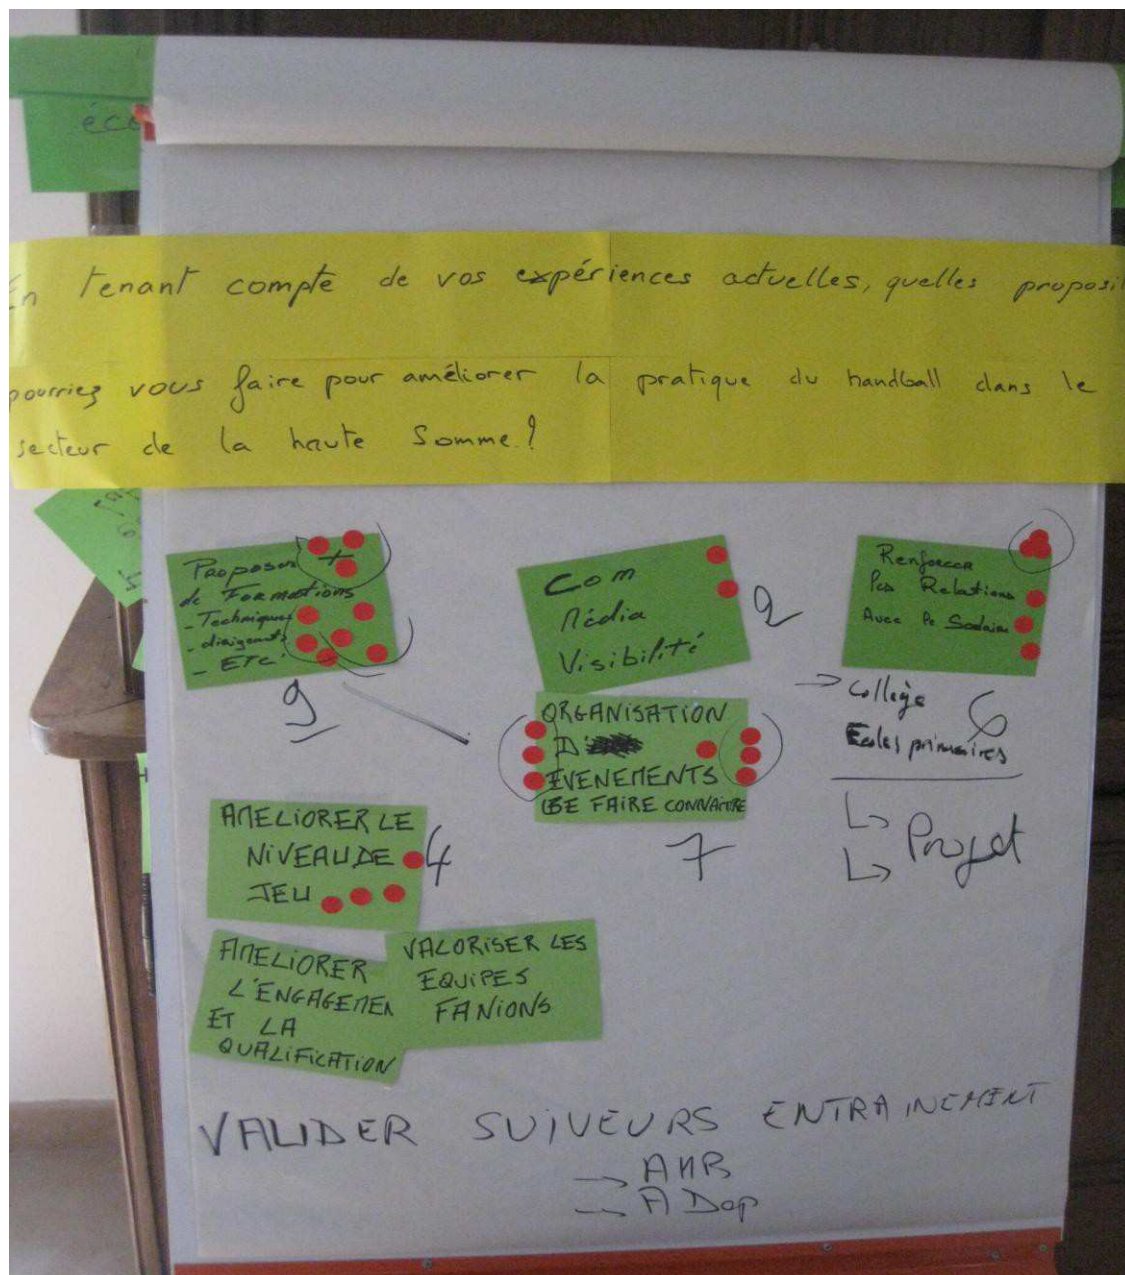 éco
En tenant compte de vos expériences actuelles, quelles proposi
pourriez vous faire pour améliorer la pratique du handball dans le
secteur de la haute Somme ?
Proposer +
de Formations
- Techniques
- dirigeants
- ETC
9
Com
Média
Visibilité
2
Renforcer
les Relations
Avec le Scolaire
→ Collège
Ecoles primaires
6
↳ Projet
↳
ORGANISATION
D'
EVENEMENTS
SE FAIRE CONNAITRE
7
AMELIORER LE
NIVEAU DE
JEU
4
AMELIORER
L'ENGAGEMEN
ET LA
QUALIFICATION
VALORISER LES
EQUIPES
FANIONS
VALIDER SUIVEURS ENTRAINEMENT
→ AHB
→ ADop